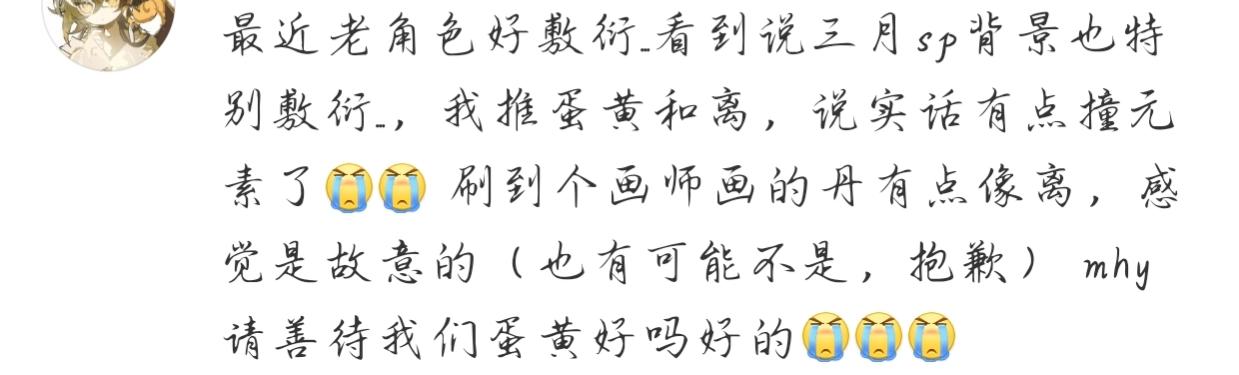 最近老角色好敷衍..看到说三月sp背景也特
别敷衍..，我推蛋黄和离，说实话有点撞元
素了😭😭 刷到个画师画的丹有点像离，感
觉是故意的（也有可能不是，抱歉） mhy
请善待我们蛋黄好吗好的😭😭😭